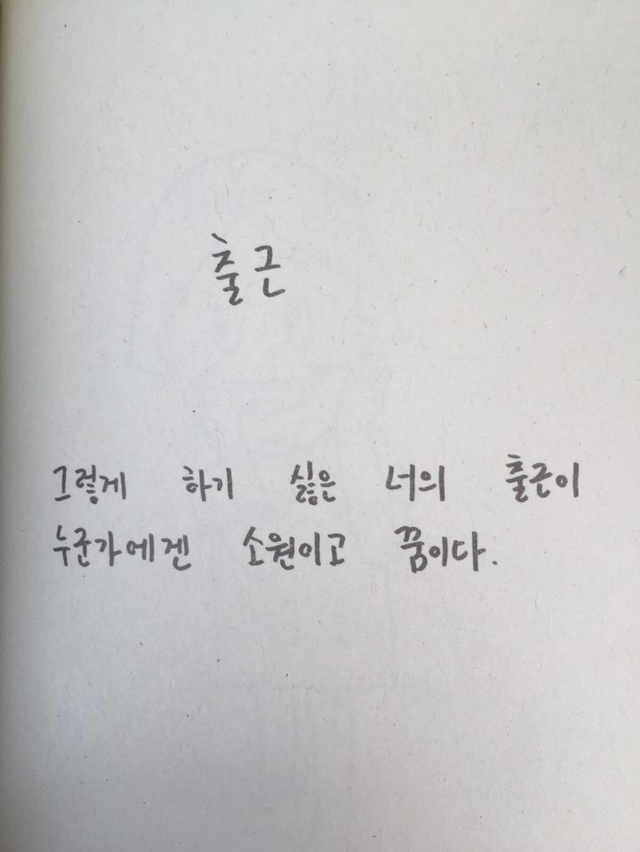 출근
그렇게 하기 싫은 너의 출근이
누군가에겐 소원이고 꿈이다.